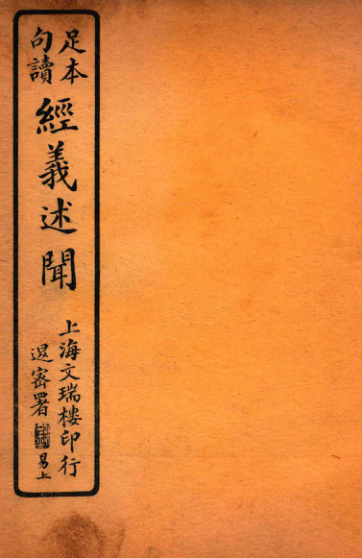 足本
句讀
經義述聞
上海文瑞樓印行
退密署
易上